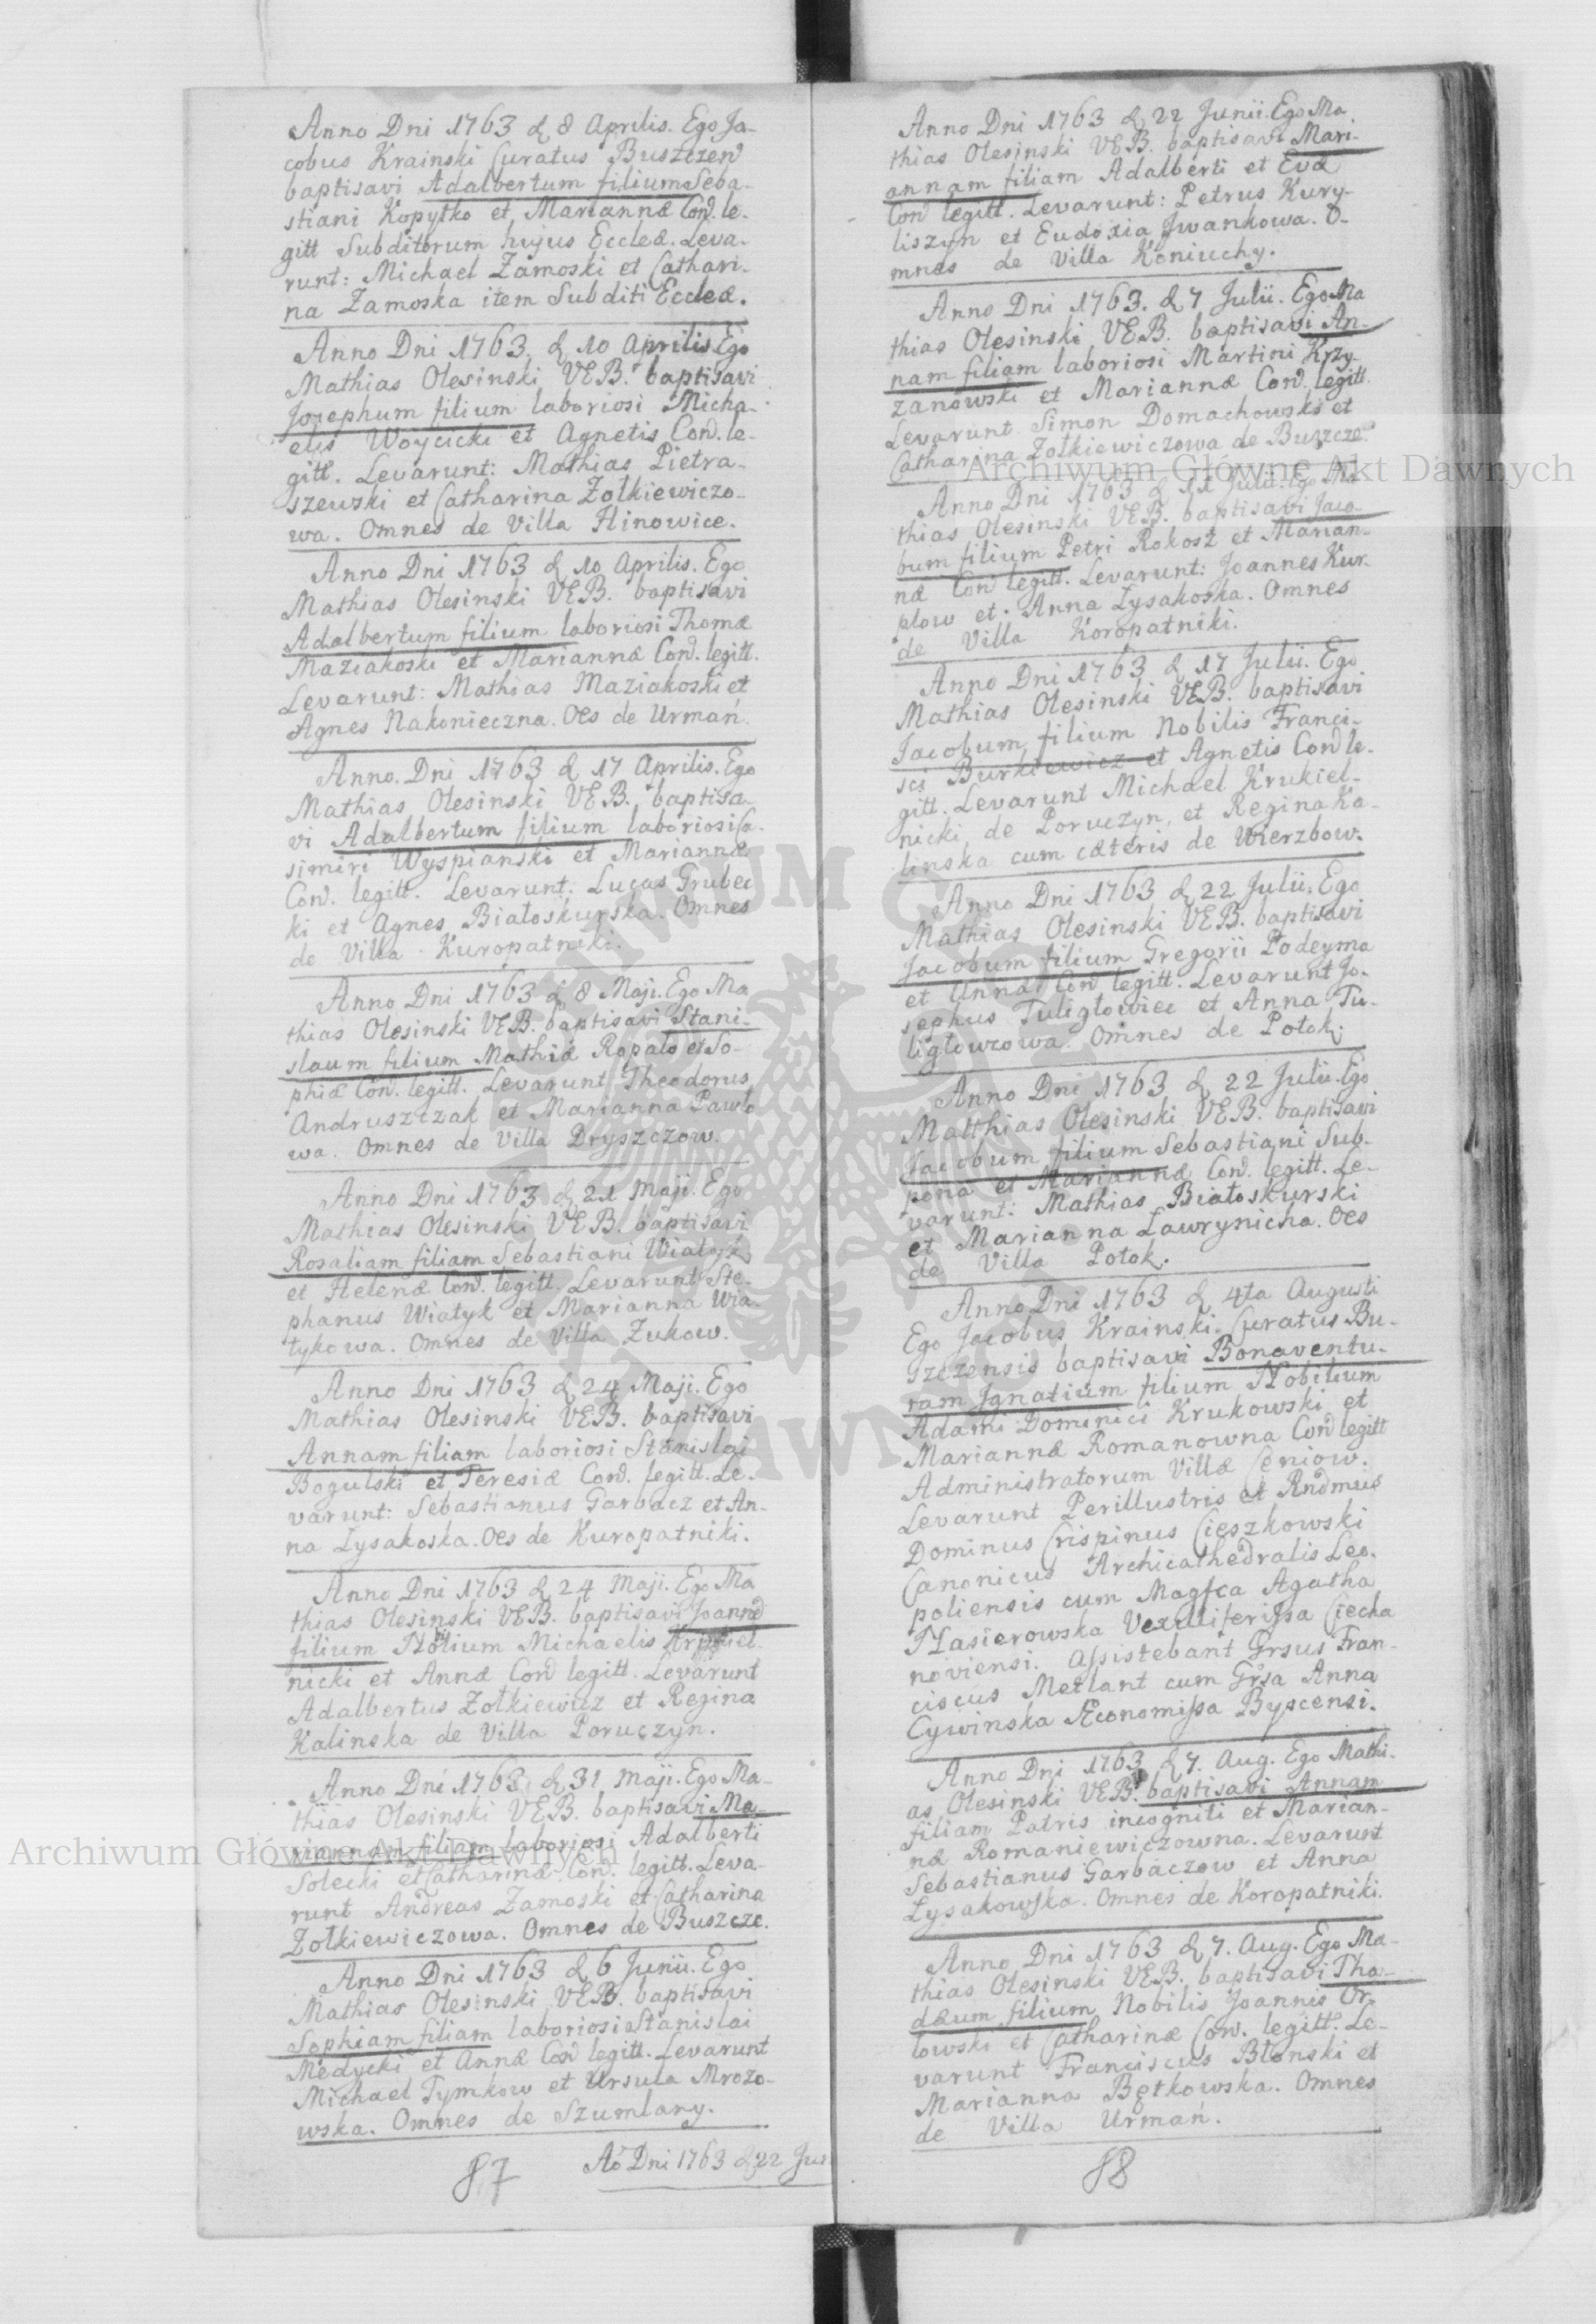 Anno Dni 1763 d 8 Aprilis. Ego Ja-
cobus Krainski Curatus Buszczen
baptisavi Adalbertum filium Seba-
stiani Kopytko et Mariannæ Con. le-
gitt Subditorum hujus Eccleæ. Leva-
runt: Michael Zamoski et Cathari-
na Zamoska item Subditi Eccleæ.
Anno Dni 1763. d 10 Aprilis. Ego
Mathias Olesinski VEB. baptisavi
Josephum filium laboriosi Micha-
elis Woycicki et Agnetis Con. le-
gitt. Levarunt: Mathias Pietra-
szewski et Catharina Zolkiewiczo-
wa. Omnes de Villa Hinowice.
Anno Dni 1763 d 10 Aprilis. Ego
Mathias Olesinski VEB. baptisavi
Adalbertum filium laboriosi Thomæ
Maziakoski et Mariannæ Con. legitt.
Levarunt: Mathias Maziakoski et
Agnes Nakonieczna. Oes de Urmań.
Anno. Dni 1763 d 17 Aprilis. Ego
Mathias Olesinski VEB. baptisa-
vi Adalbertum filium laboriosi Ca-
simiri Wyspianski et Mariannæ
Con. legitt. Levarunt: Lucas Grubec
ki et Agnes Białoskurska. Omnes
de Villa Kuropatniki.
Anno Dni 1763 d 8 Maji. Ego Ma
thias Olesinski VEB. baptisavi Stani-
slaum filium Mathiæ Ropało et So-
phiæ Con. legitt. Levarunt Theodorus
Andruszczak et Marianna Pawło
wa. Omnes de Villa Dryszczow.
Anno Dni 1763 d 21 Maji. Ego
Mathias Olesinski VEB. baptisavi
Rosaliam filiam Sebastiani Wiatyk
et Helenæ Con. legitt. Levarunt Ste-
phanus Wiatyk et Marianna Wia-
tykowa. Omnes de Villa Zukow.
Anno Dni 1763 d 24 Maji. Ego
Mathias Olesinski VEB. baptisavi
Annam filiam laboriosi Stanislai
Bogulski et Teresiæ Con. legitt. Le-
varunt: Sebastianus Garbacz et An-
na Lysakoska. Oes de Kuropatniki.
Anno Dni 1763 d 24 Maji. Ego Ma
thias Olesinski VEB. baptisavi Joanne
filium Nobilium Michaelis Krukiel-
nicki et Annæ Con legitt. Levarunt
Adalbertus Zołkiewicz et Regina
Kalinska de Villa Poruczyn.
Anno Dni 1763 d 31 Maji. Ego Ma-
thias Olesinski VEB. baptisavi Ma-
riannam filiam laboriosi Adalberti
Solecki et Catharinæ Con. legitt. Leva-
runt Andreas Zamoski et Catharina
Zołkiewiczowa. Omnes de Buszcze.
Anno Dni 1763 d 6 Junii. Ego
Mathias Olesinski VEB. baptisavi
Sophiam filiam laboriosi Stanislai
Medycki et Annæ Con legitt. Levarunt
Michael Tymkow et Ursula Mrozo-
wska. Omnes de Szumlany.
87 Ao Dni 1763 d 22 Jun
Anno Dni 1763 d 22 Junii. Ego Ma
thias Olesinski VEB. baptisavi Mari-
annam filiam Adalberti et Evæ
Con legitt. Levarunt: Petrus Kury-
liszyn et Eudoxia Jwankowa. O-
mnes de Villa Koniuchy.
Anno Dni 1763. d 7 Julii. Ego Ma
thias Olesinski VEB. baptisavi An-
nam filiam laboriosi Martini Krzy-
zanowski et Mariannæ Con. legitt.
Levarunt Simon Domachowski et
Catharina Zołkiewiczowa de Buszcze.
Anno Dni 1763 d 11 Julii. Ego Ma
thias Olesinski VEB. baptisavi Jaco-
bum filium Petri Rokosz et Marian-
næ Con legitt. Levarunt: Joannes Kur-
plow et Anna Lysakoska. Omnes
de Villa Koropatniki.
Anno Dni 1763 d 17 Julii. Ego
Mathias Olesinski VEB. baptisavi
Jacobum filium Nobilis Franci-
sci Burkiewicz et Agnetis Con le-
gitt. Levarunt Michael Krukiel-
nicki de Poruczyn, et Regina Ka-
linska cum cæteris de Wierzbow.
Anno Dni 1763 d 22 Julii. Ego
Mathias Olesinski VEB. baptisavi
Jacobum filium Gregorii Podeyma
et Annæ Con legitt. Levarunt Jo-
sephus Tuligłowiec et Anna Tu-
ligłowzowa. Omnes de Potok.
Anno Dni 1763 d 22 Julii. Ego
Matthias Olesinski VEB. baptisavi
Jacobum filium Sebastiani Sub-
pona et Mariannæ Con. legitt. Le-
varunt: Mathias Białoskurski
et Marianna Lawrynicha. Oes
de Villa Potok.
Anno Dni 1763 d 4ta Augusti
Ego Jacobus Krainski Curatus Bu-
szczensis baptisavi Bonaventu-
ram Jgnatium filium Nobilium
Adami Dominici Krukowski et
Mariannæ Romanowna Con legitt
Administratorum Villæ Ceniow.
Levarunt Perillustris et Rndmus
Dominus Crispinus Cieszkowski
Canonicus Archicathedralis Leo-
poliensis cum Magfca Agatha
Nasierowska Vexilliferissa Ciecha
noviensi. Assistebant Grsus Fran-
ciscus Metlant cum Grsa Anna
Cywinska Æconomissa Byscensi.
Anno Dni 1763 d 7. Aug. Ego Mathi-
as Olesinski VEB. baptisavi Annam
filiam Patris incogniti et Marian-
næ Romaniewiczowna. Levarunt
Sebastianus Garbaczow et Anna
Lysakowska. Omnes de Koropatniki.
Anno Dni 1763 d 7. Aug. Ego Ma-
thias Olesinski VEB. baptisavi Tha-
dæum filium Nobilis Joannis Or-
łowski et Catharinæ Con. legitt. Le-
varunt Franciscus Błonski et
Marianna Bętkowska. Omnes
de Villa Urmań.
88
Archiwum Główne Akt Dawnych
Archiwum Główne Akt Dawnych